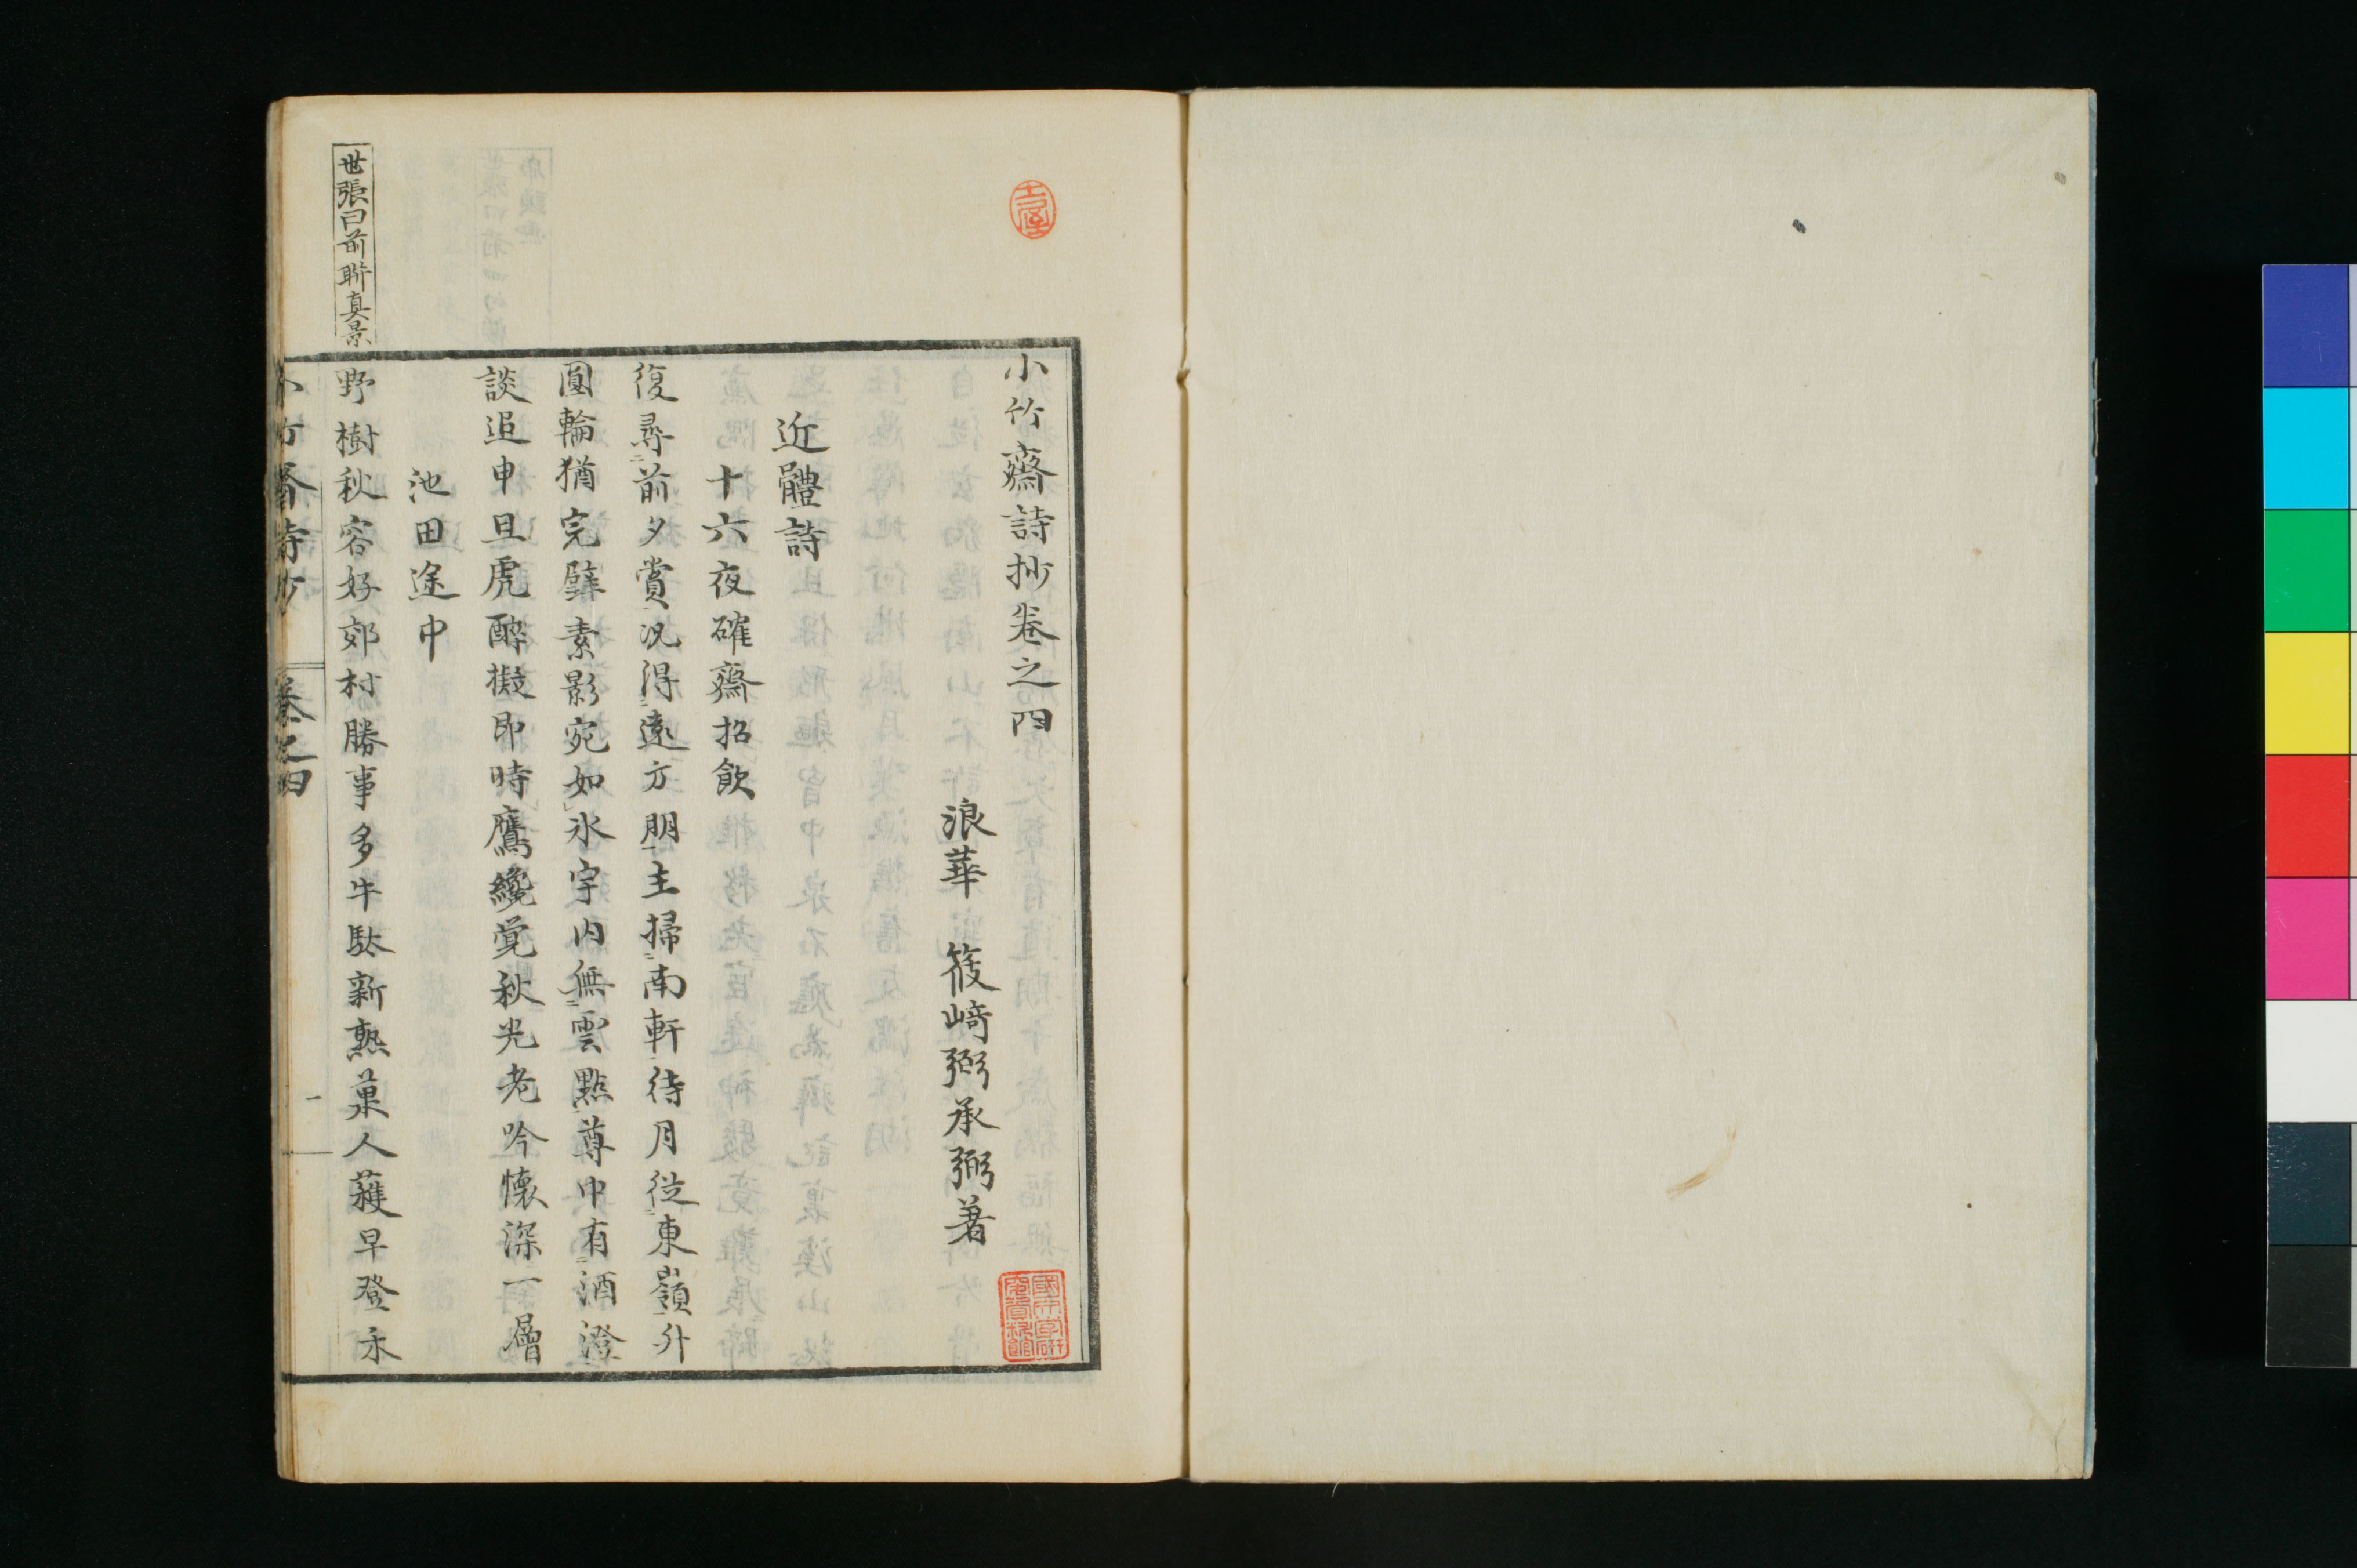 小竹齋詩抄卷之四
浪華 筱﨑弼承弼著
近體詩
十六夜確齋招飲
復尋前夕賞况得遠方朋主掃南軒待月從東嶺升
圓輪猶完璧素影宛如氷宇内無雲點尊中有酒澄
談追申旦虎酔擬即時鷹纔覚秋光老吟懷深一層
池田途中
野樹秋容好郊村勝事多牛駄新熟菓人蘀早登禾
世張曰前聨真景
小竹齋詩抄 卷之四 一